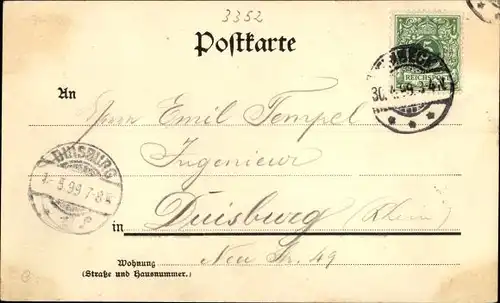 3352
Postkarte
REICHSPOST
5
30.4.99.3-4N.
An
Herrn Emil Tempel
Ingenieur
DUISBURG
1.5.99.7-8V.
in Duisburg (Rhein)
Wohnung Neu Str. 49
(Straße und Hausnummer.)